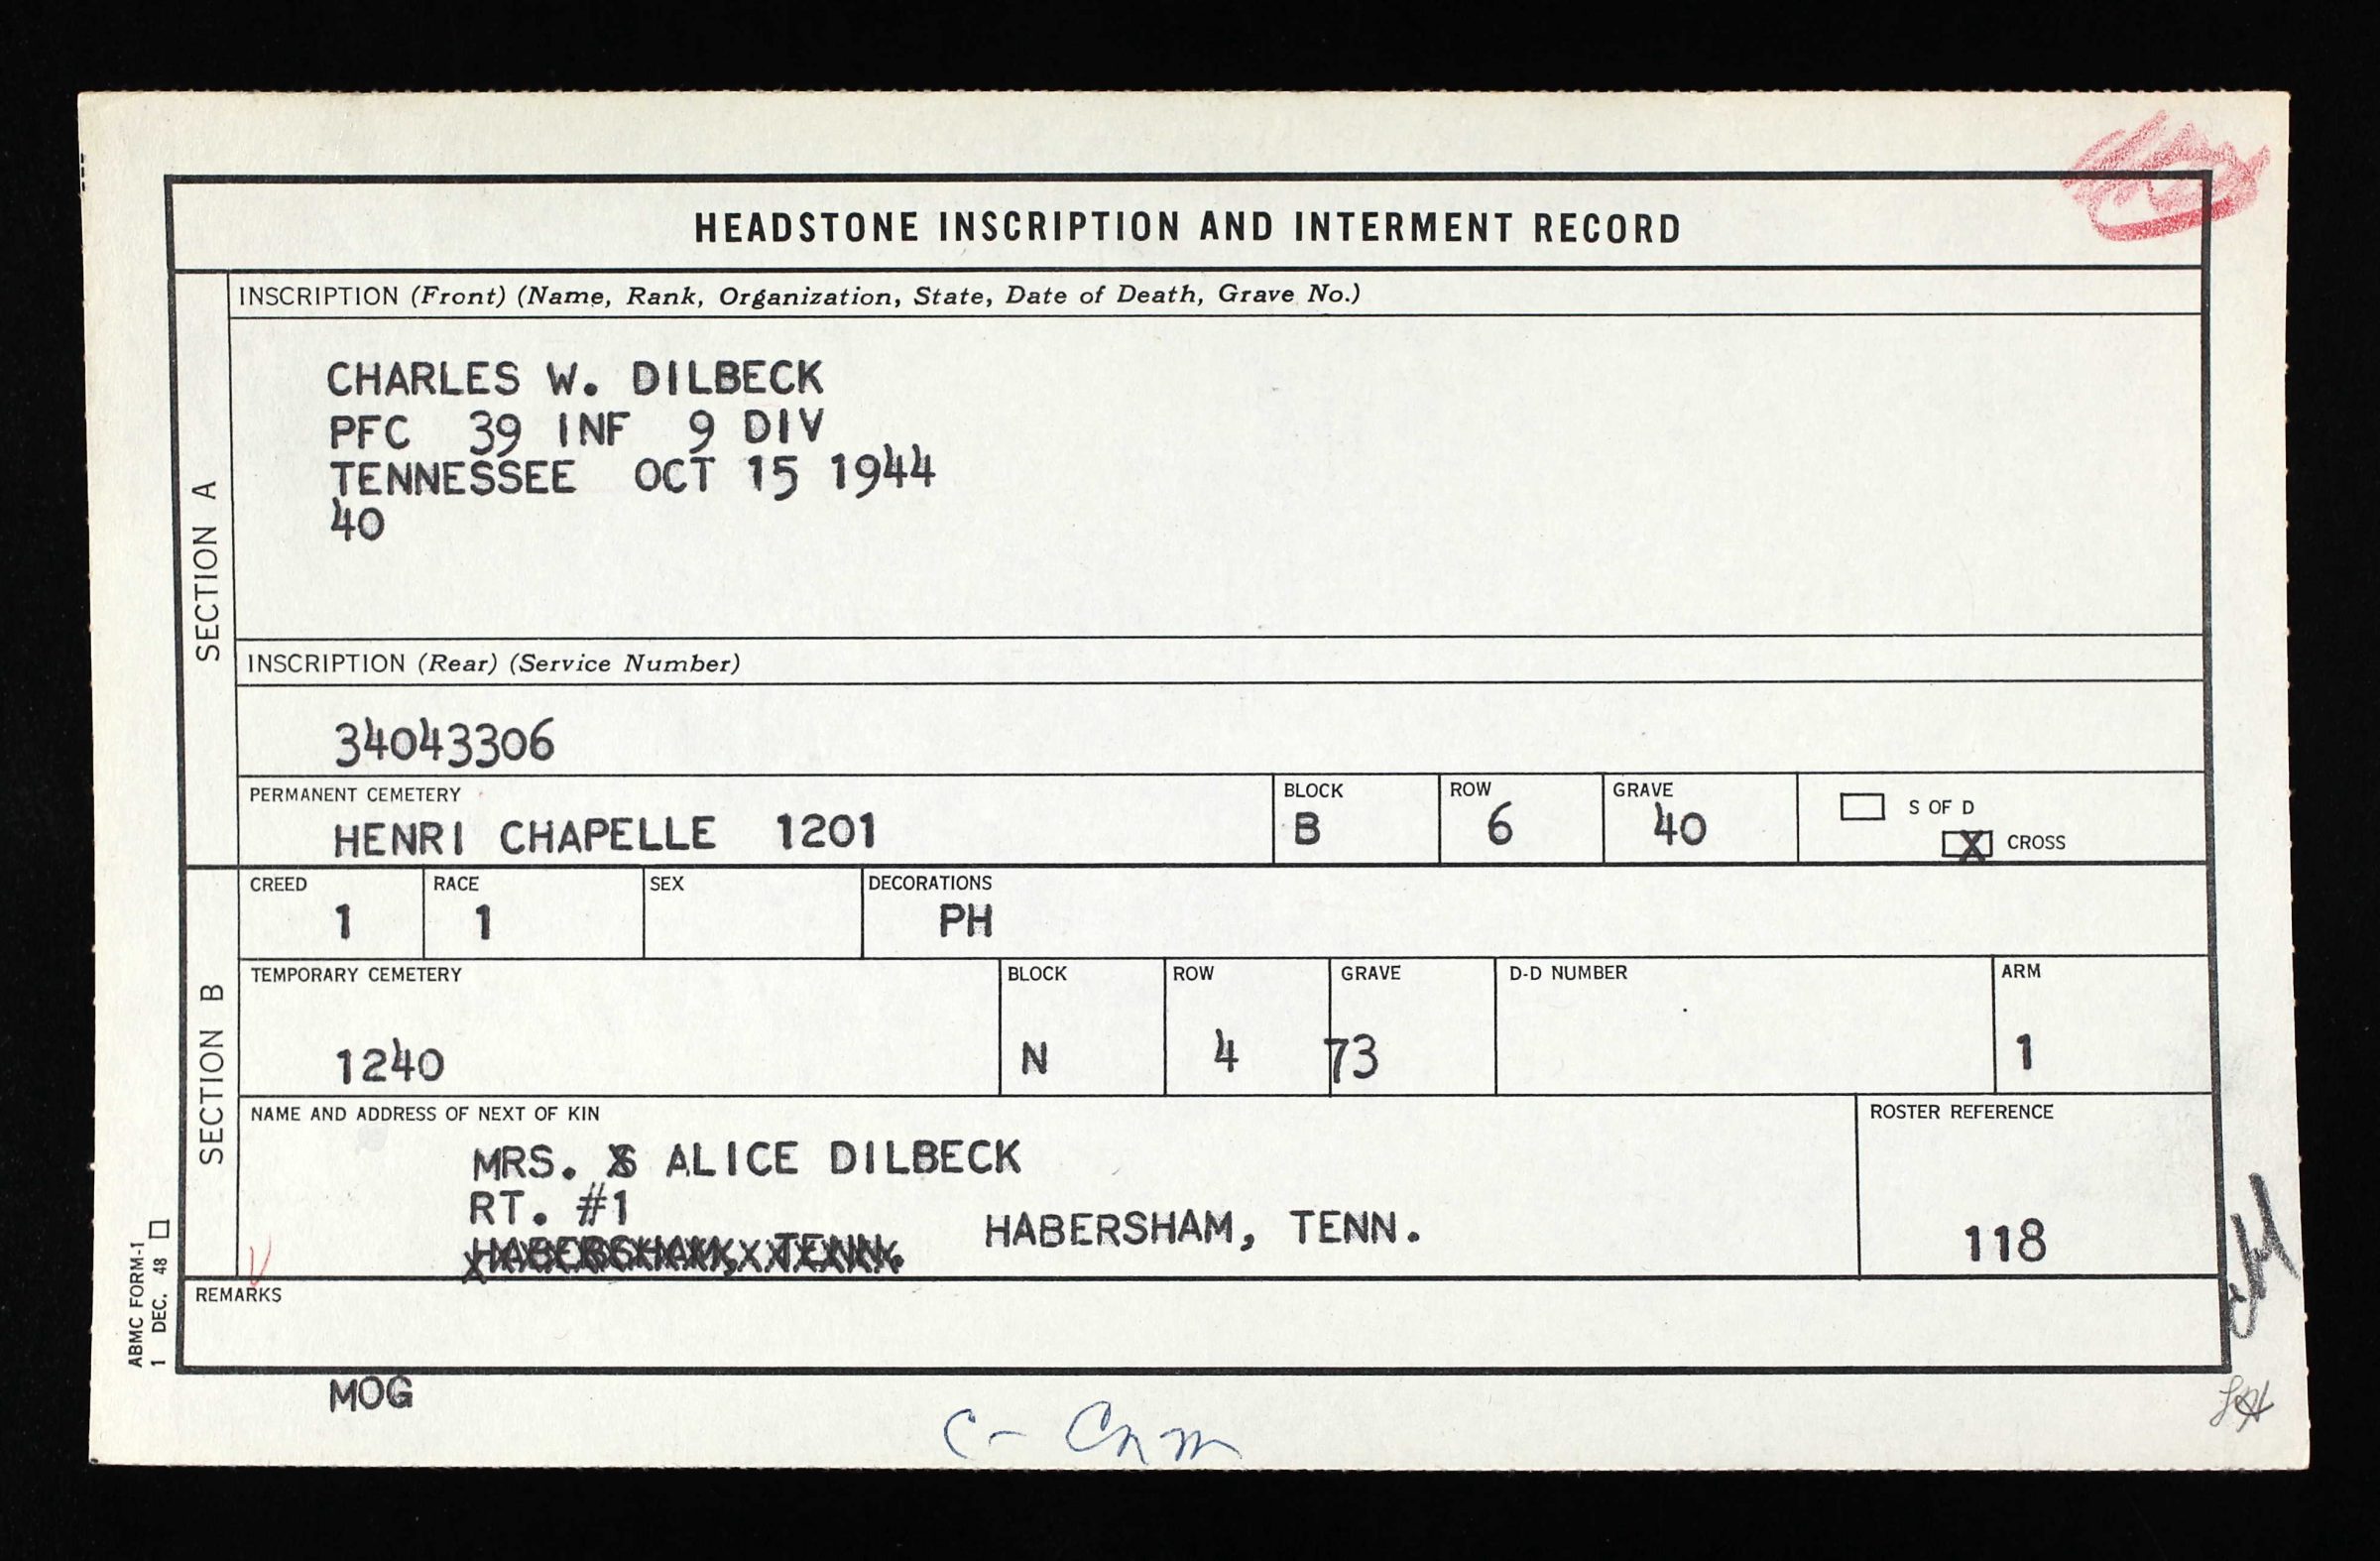 HEADSTONE INSCRIPTION AND INTERMENT RECORD
SECTION A
INSCRIPTION (Front) (Name, Rank, Organization, State, Date of Death, Grave No.)
CHARLES W. DILBECK
PFC 39 INF 9 DIV
TENNESSEE OCT 15 1944
40
INSCRIPTION (Rear) (Service Number)
34043306
PERMANENT CEMETERY BLOCK ROW GRAVE
HENRI CHAPELLE 1201 B 6 40
S OF D
X CROSS
SECTION B
CREED RACE SEX DECORATIONS
1 1 PH
TEMPORARY CEMETERY BLOCK ROW GRAVE D-D NUMBER ARM
1240 N 4 73 1
NAME AND ADDRESS OF NEXT OF KIN ROSTER REFERENCE
MRS. ALICE DILBECK
RT. #1
HABERSHAM, TENN.
HABERSHAM, TENN.
118
REMARKS
ABMC FORM-1
1 DEC. 48
MOG